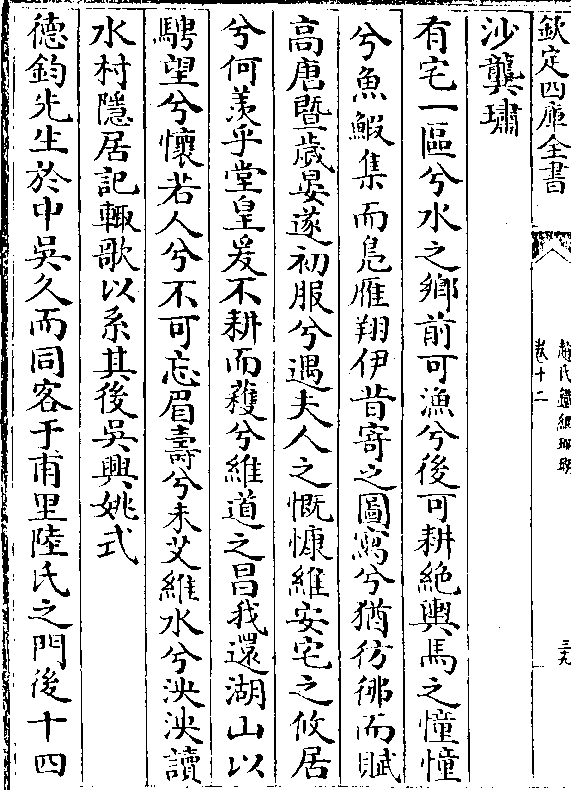 欽定四庫全書
趙氏鐵網珊瑚
卷十二
三九
沙龔璛
有宅一區兮水之鄉前可漁兮後可耕絶輿馬之憧憧
兮魚鰕集而鳧雁翔伊昔寄之圖寫兮猶彷彿而賦
高唐暨歲晏遂初服兮遇夫人之慨慷維安宅之攸居
兮何羨乎堂皇爰不耕而穫兮維道之昌我還湖山以
騁望兮懷若人兮不可忘眉壽兮未艾維水兮泱泱讀
水村隱居記輙歌以系其後吳興姚式
德鈞先生於中吳久而同客于甫里陸氏之門後十四